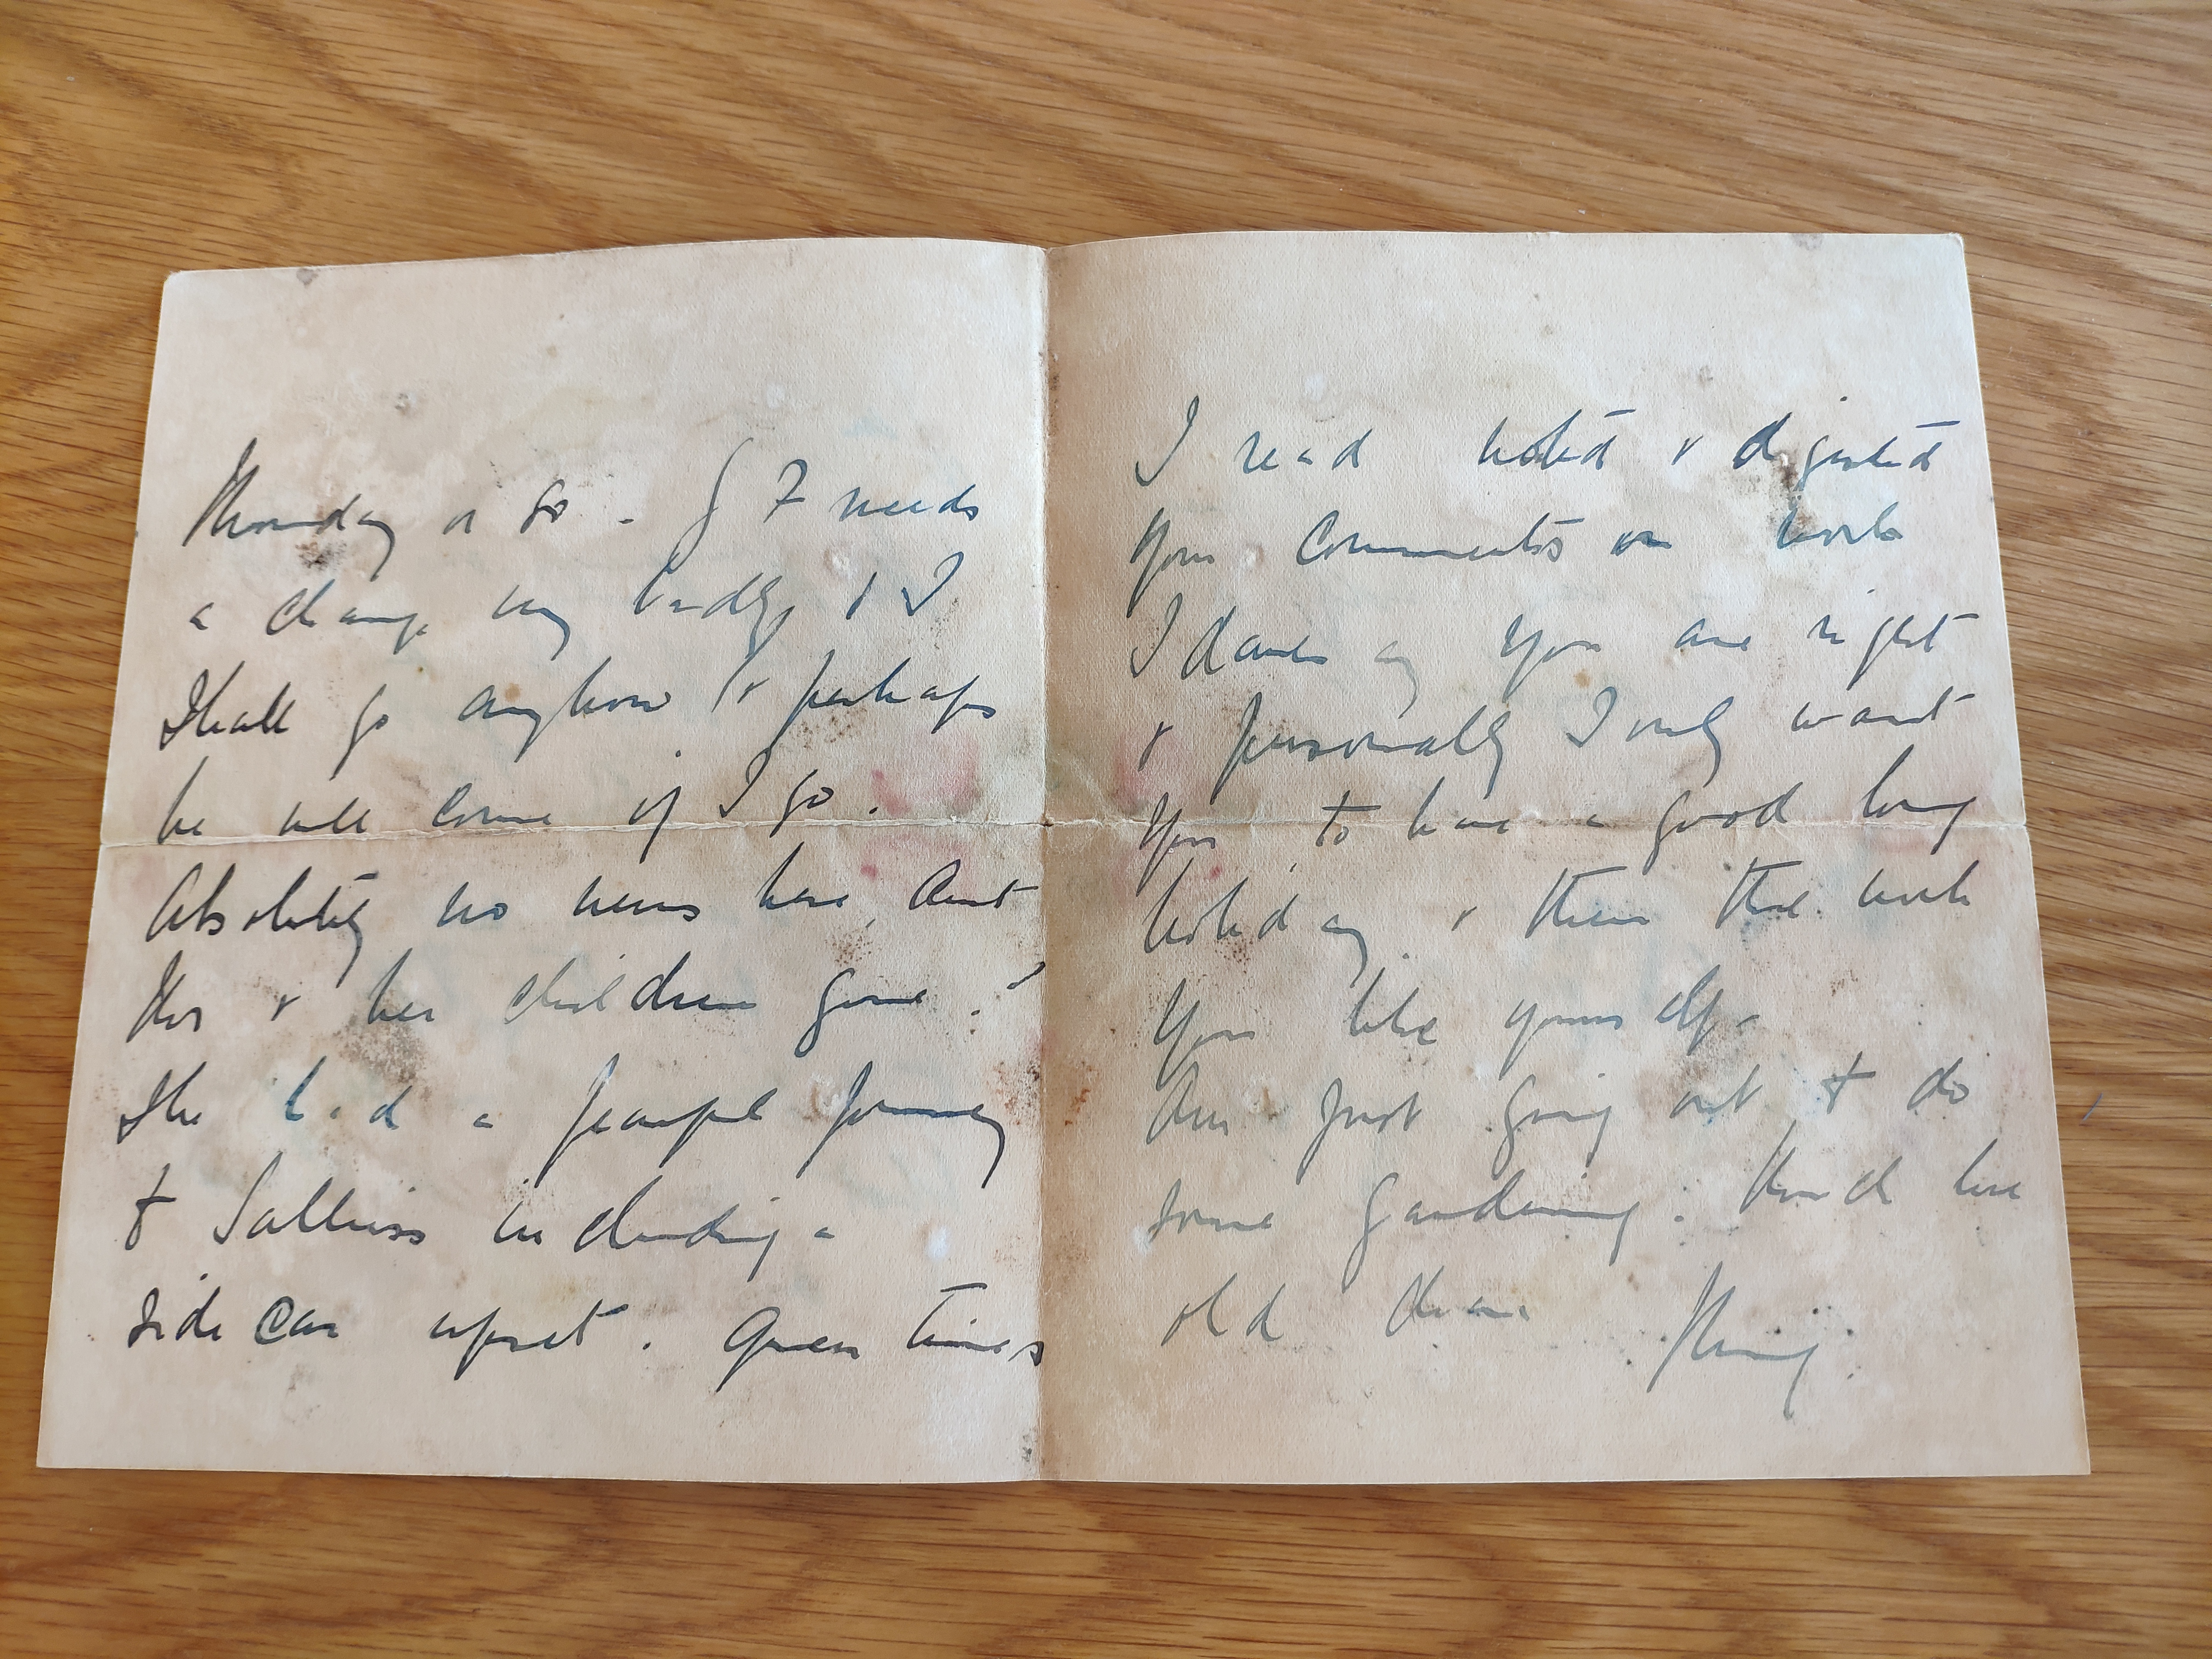 Monday or so. G F needs
a change very badly & I
shall go anyhow & perhaps
he will come if I go.
Absolutely no news here, Aunt
& her children gone?
She had a fearful journey
to including a
side car upset. Green times
I read noted & digested
your comments on work
I daresay you are right
& personally I only want
you to have a good long
holiday & then the work
you like yourself.
Am just going out to do
some gardening. Much love
old dear